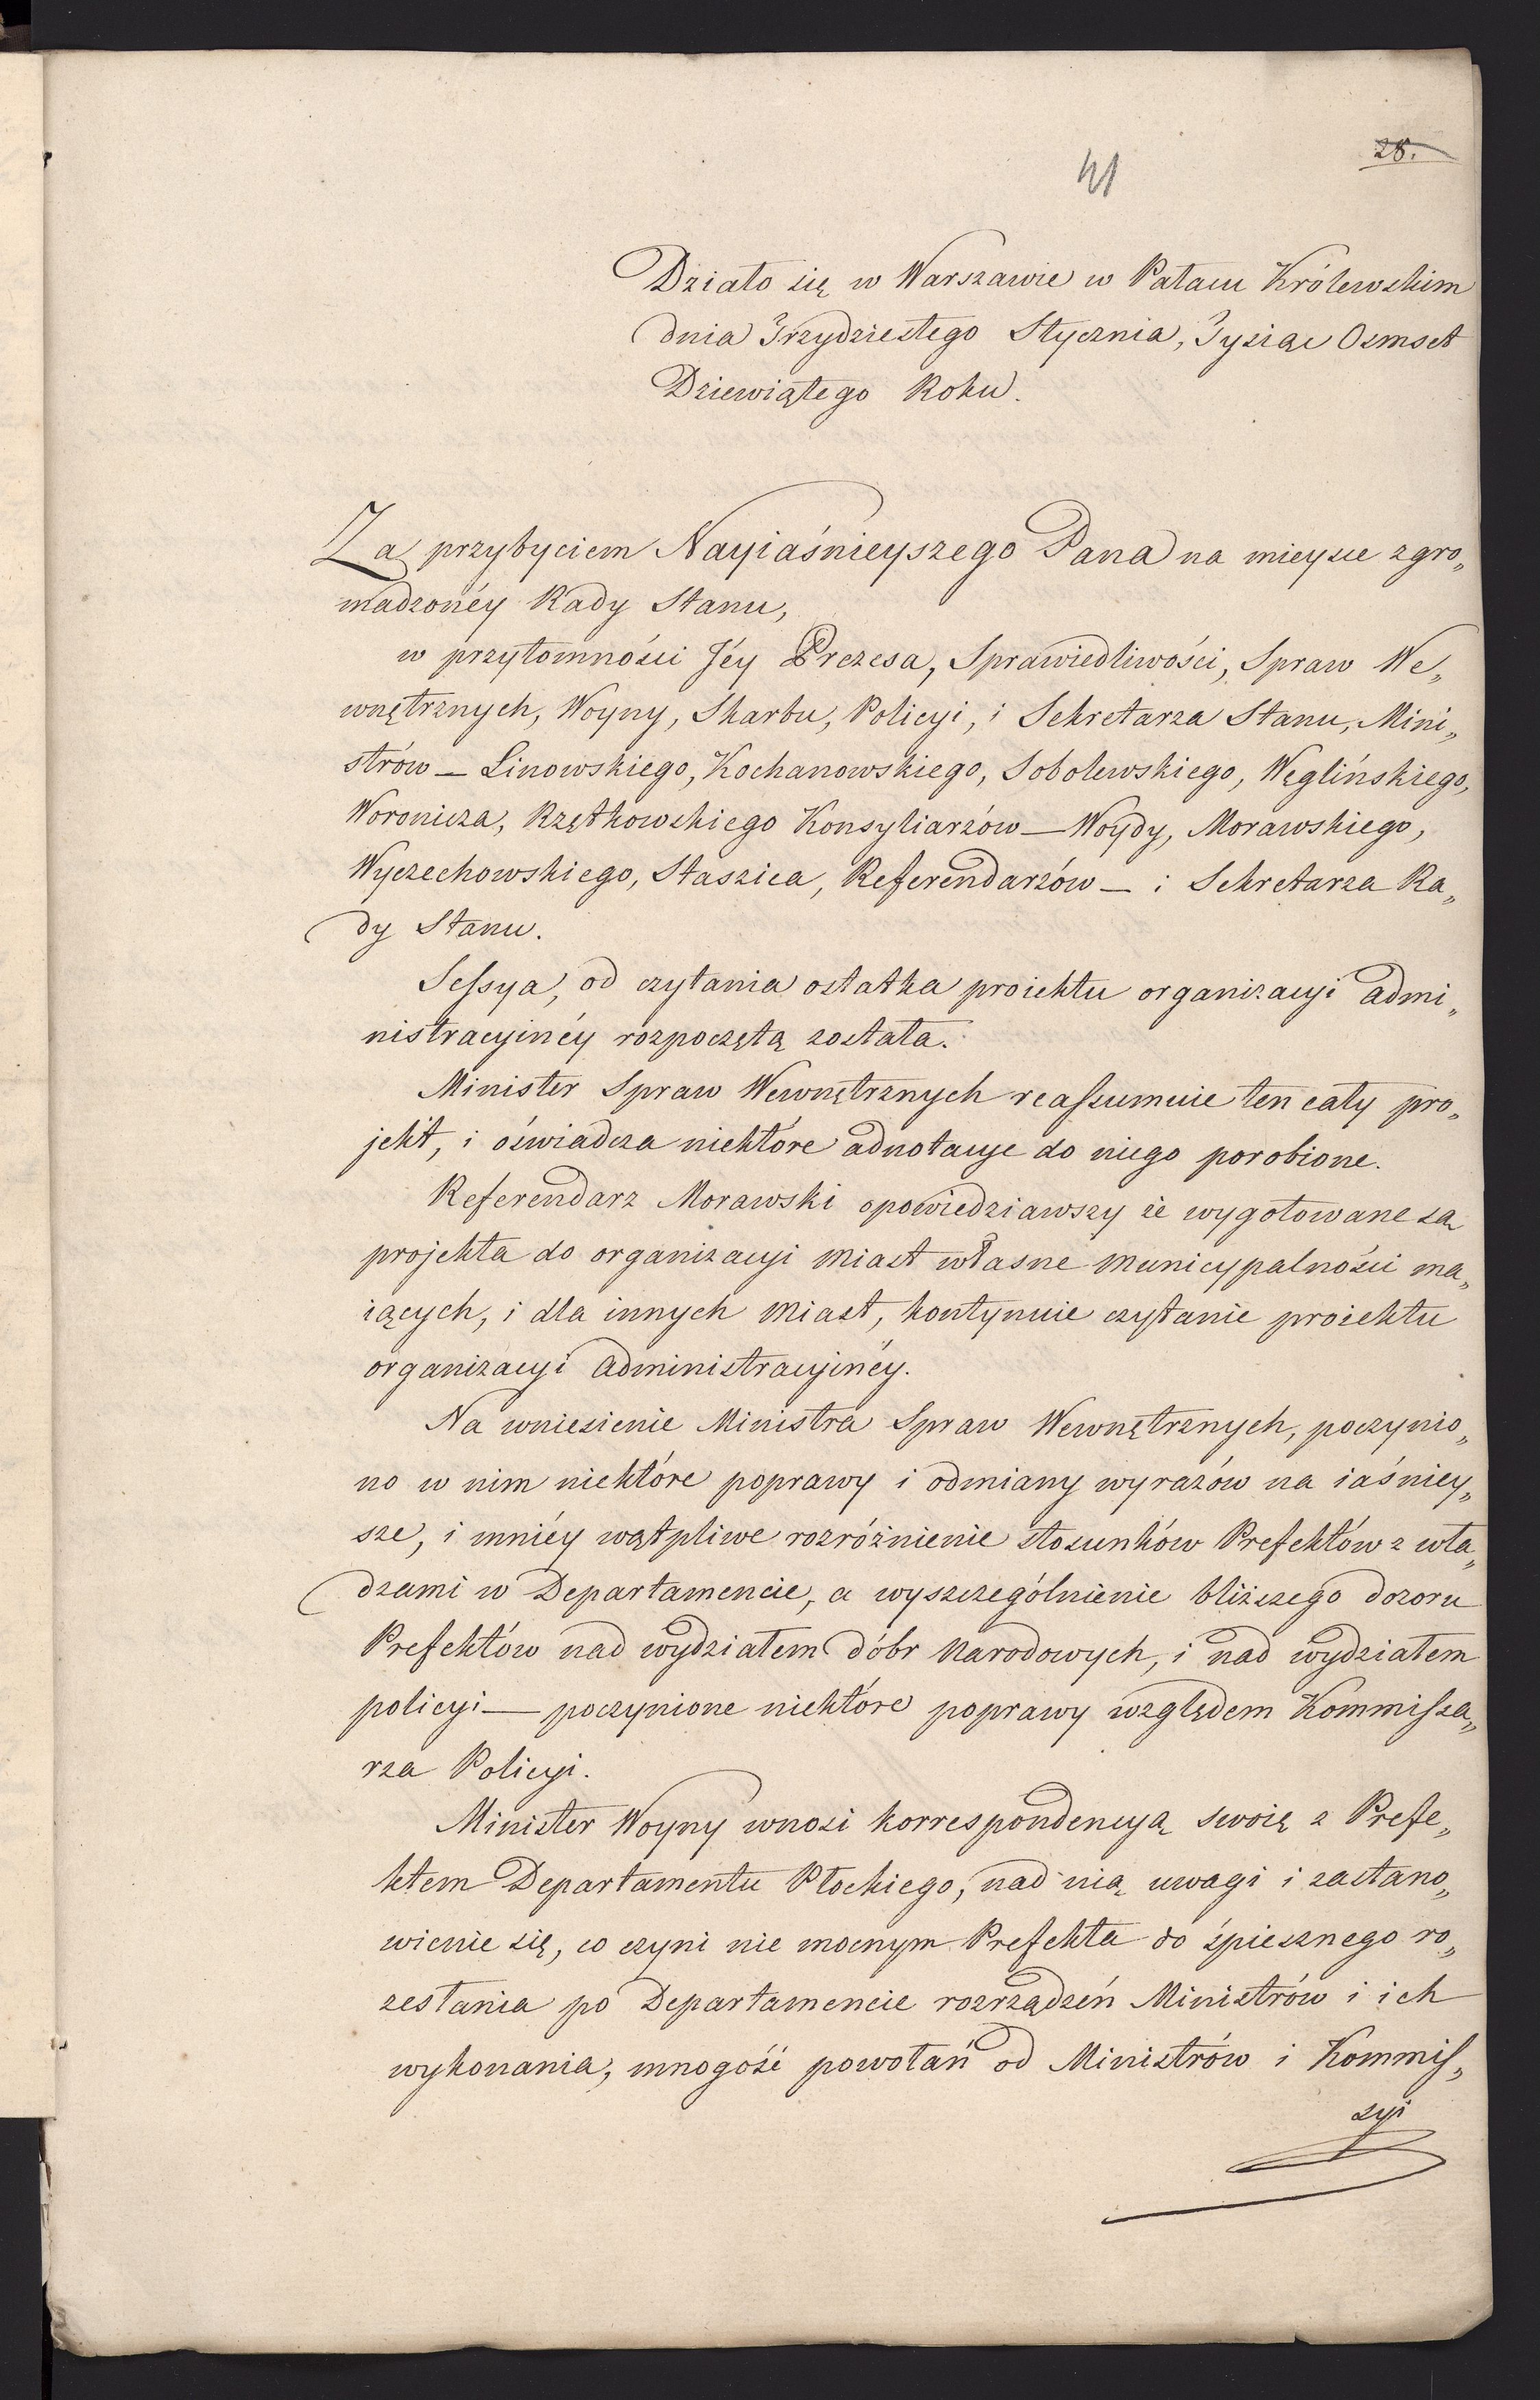 28.
41
Działo się w Warszawie w Pałacu Królewskim
dnia Trzydziestego Stycznia, Tysiąc Osmset
Dziewiątego Roku.
Za przybyciem Nayiaśnieyszego Pana na mieysce zgro„
madzonéy Rady Stanu,
w przytomności Jéy Prezesa, Sprawiedliwości, Spraw We„
wnętrznych, Woyny, Skarbu, Policyi, i Sekretarza Stanu, Mini„
strów — Linowskiego, Kochanowskiego, Sobolewskiego, Węglińskiego,
Woronicza, Rzętkowskiego Konsyliarzów — Woydy, Morawskiego,
Wyczechowskiego, Staszica, Referendarzów — i Sekretarza Ra„
dy Stanu.
Sessya, od czytania ostatka proiektu organizacyi admi„
nistracyinéy rozpoczętą została.
Minister Spraw Wewnętrznych reassumuie ten cały pro„
jekt, i oświadcza niektóre adnotacye do niego porobione.
Referendarz Morawski opowiedziawszy że wygotowane są
projekta do organizacyi Miast własne Municypalności ma„
iących, i dla innych Miast, kontynuie czytanie proiektu
organizacyi administracyinéy.
Na wniesienie Ministra Spraw Wewnętrznych, poczynio„
no w nim niektóre poprawy i odmiany wyrazów na iaśniey„
sze, i mniéy wątpliwe rozróżnienie stosunków Prefektów z wła„
dzami w Departamencie, a wyszczególnienie bliższego dozoru
Prefektów nad wydziałem dóbr Narodowych, i nad wydziałem
policyi — poczynione niektóre poprawy względem Kommissa„
rza Policyi.
Minister Woyny wnosi korrespondencyą swoię z Prefe„
ktem Departamentu Płockiego, nad nią uwagi i zastano„
wienie się, co czyni nie mocnym Prefekta do śpiesznego ro„
zesłania po Departamencie rozrządzeń Ministrów i ich
wykonania, mnogość powołań od Ministrów i Kommis„
syi